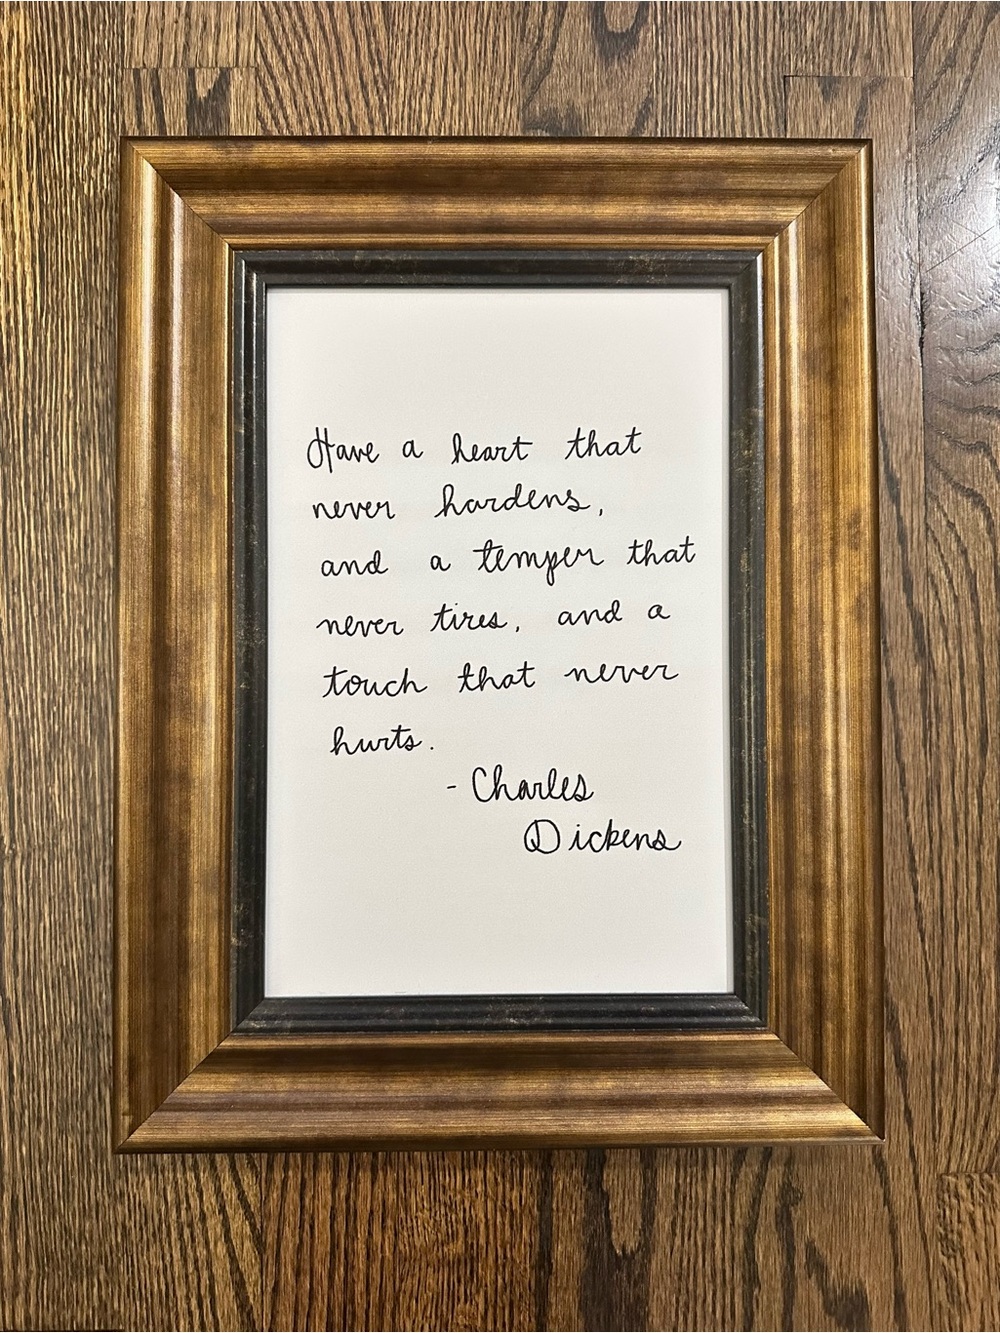 Have a heart that
never hardens,
and a temper that
never tires, and a
touch that never
hurts.
- Charles
Dickens